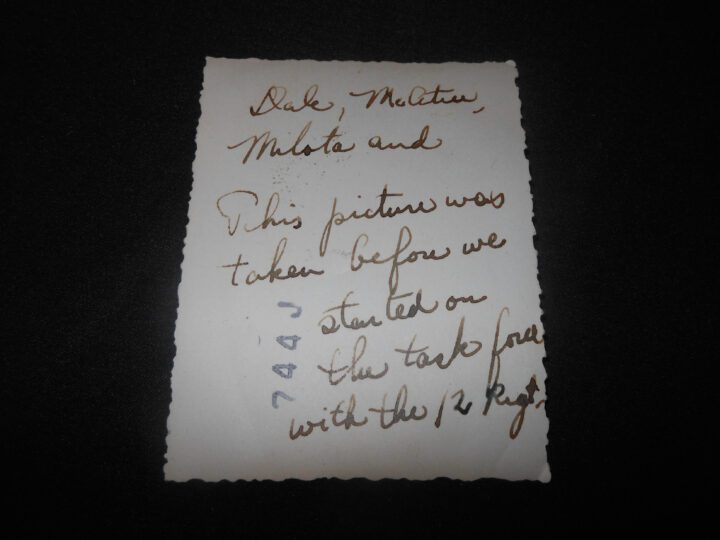 Dale,
Milota and
This picture was
taken before we
started on
the task force
with the 12 Regt.
744J